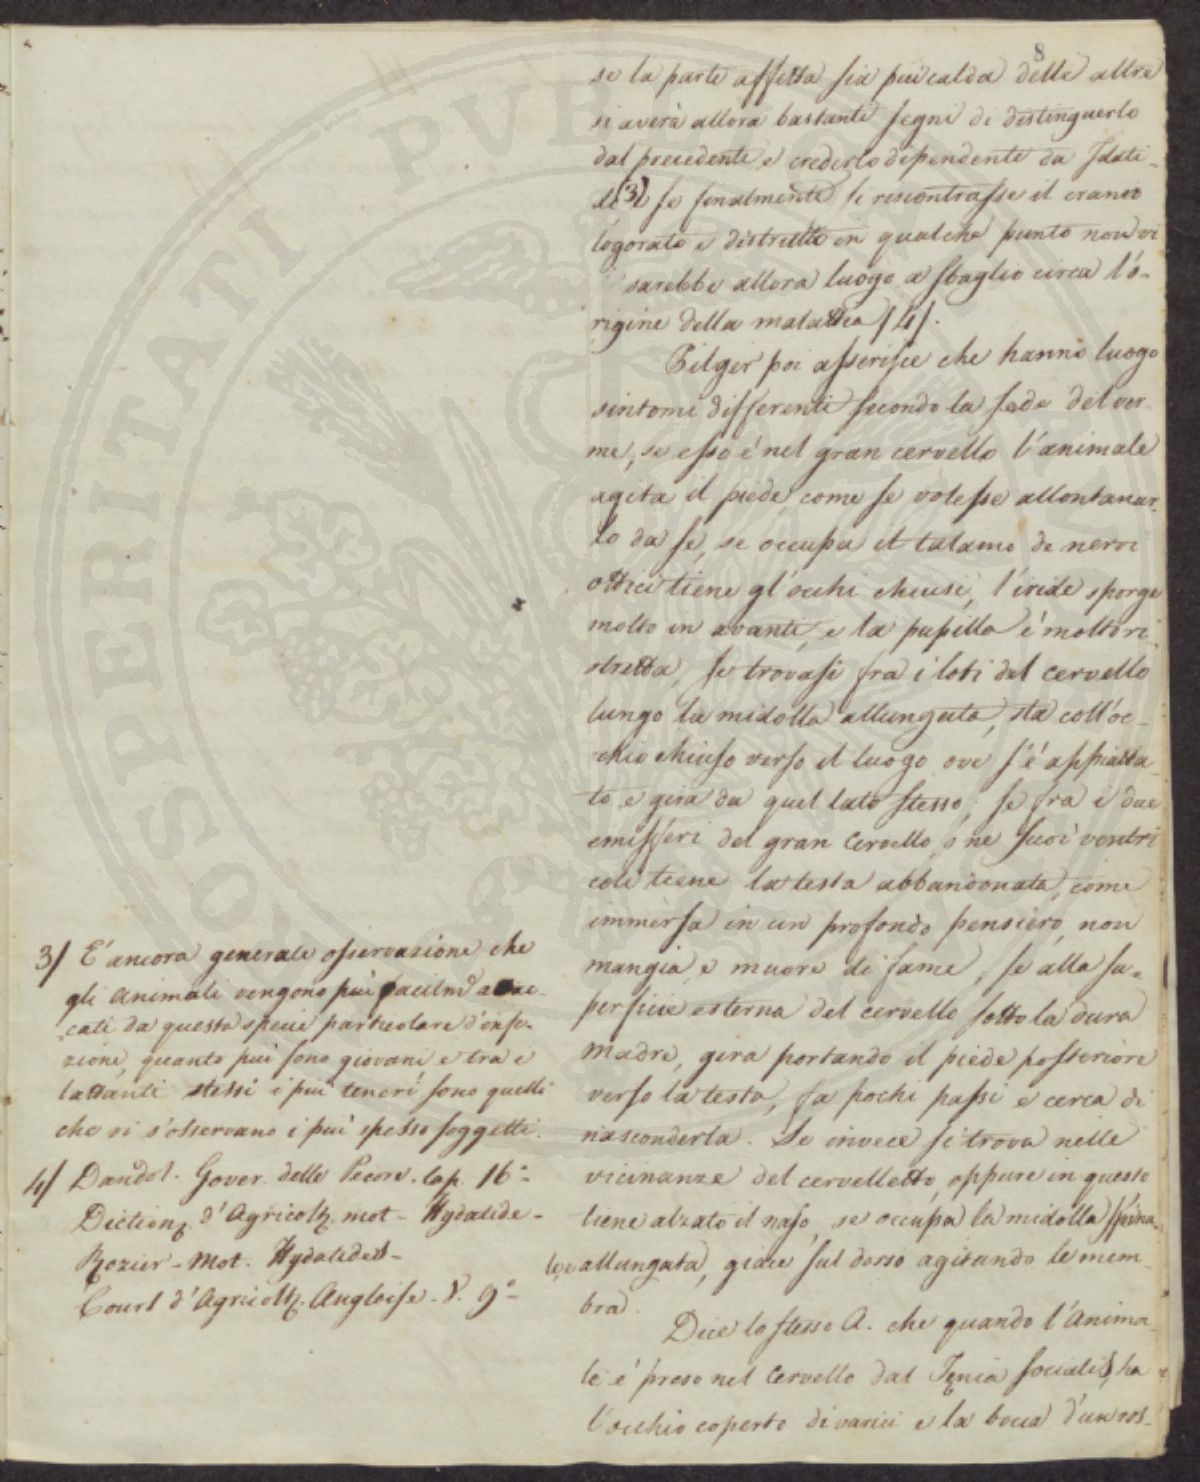 8
se la parte affetta sia più calda delle altre
si averà allora bastanti segni di distinguerlo
dal precedente e crederlo dipendente da Idati-
de(3) se finalmente si riscontrasse il cranio
logorato e distrutto in qualche punto non vi
sarebbe allora luogo a sbaglio circa l'o-
rigine della malattia /4/.
Pilger poi asserisce che hanno luogo
sintomi differenti secondo la sede del ver-
me, se esso è nel gran cervello l'animale
agita il piede, come se volesse allontanar-
lo da se, se occupa il talamo de nervi
ottici tiene gl'occhi chiusi, l'iride sporge
molto in avanti, e la pupilla è molto ri-
stretta, se trovasi fra i lobi del cervello
lungo la midolla allungata, sta coll'oc-
chio chiuso verso il luogo ove s'è appiatta-
to e gira da quel lato stesso; se fra i due
emisferi del gran cervello, o ne suoi ventri
coli tiene la testa abbandonata, come
immersa in un profondo pensiero, non
mangia, e muore di fame, se alla su-
perficie esterna del cervello sotto la dura
madre, gira portando il piede posteriore
verso la testa, fa pochi passi e cerca di
nasconderla. Se invece si trova nelle
vicinanze del cervelletto, oppure in questo
tiene alzato il naso, se occupa la midolla spina-
le, o allungata, giace sul dorso agitando le mem-
bra.
Dice lo stesso A. che quando l'Anima-
le è preso nel cervello dal Tenia socialis, ha
l'occhio coperto di varici e la bocca d'un ros-
3/ E' ancora generale osservazione che
gli animali vengono più facilm.e attac-
cati da questa specie particolare d'infe-
zione, quanto più sono giovani, e tra i
lattanti stessi i più teneri sono quelli
che vi s'osservano i più spesso soggetti.
4/ Dandol. Gover. delle Pecore. Cap. 16°-
Diction. d'Agricolt. mot- Hydatide-
Rozier- Mot. Hydatides-
Cours d'Agricolt. Angloise. T. 9°-
PROSPERITATI PUB